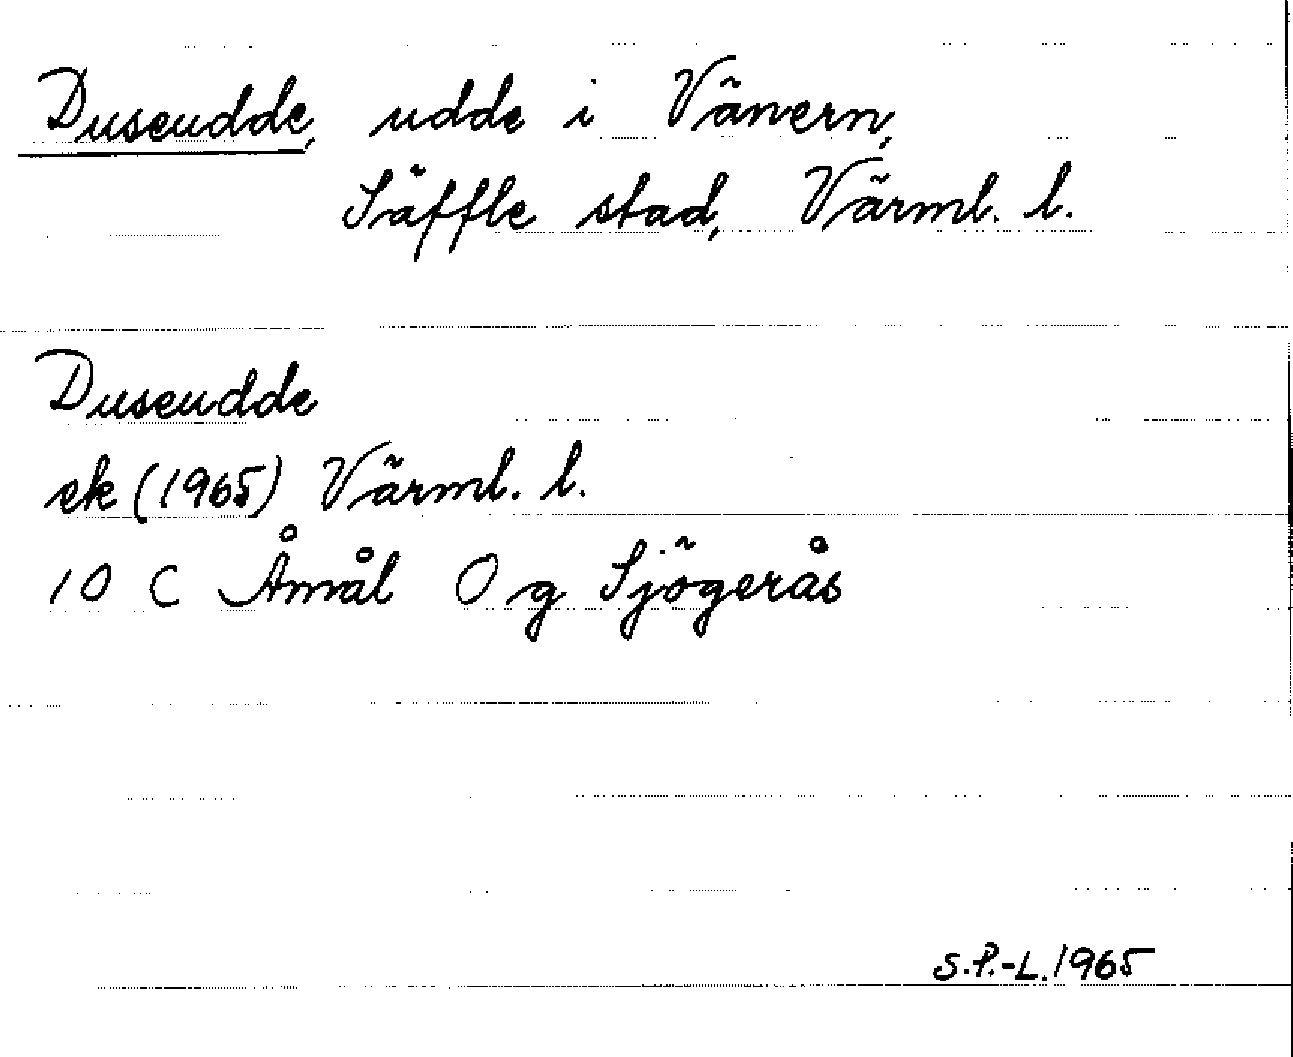 Duseudde, udde i Vänern,
Säffle stad, Värml. l.
Duseudde
ek (1965) Värml. l.
10 C Åmål O g Sjögerås
S.P.-L. 1965